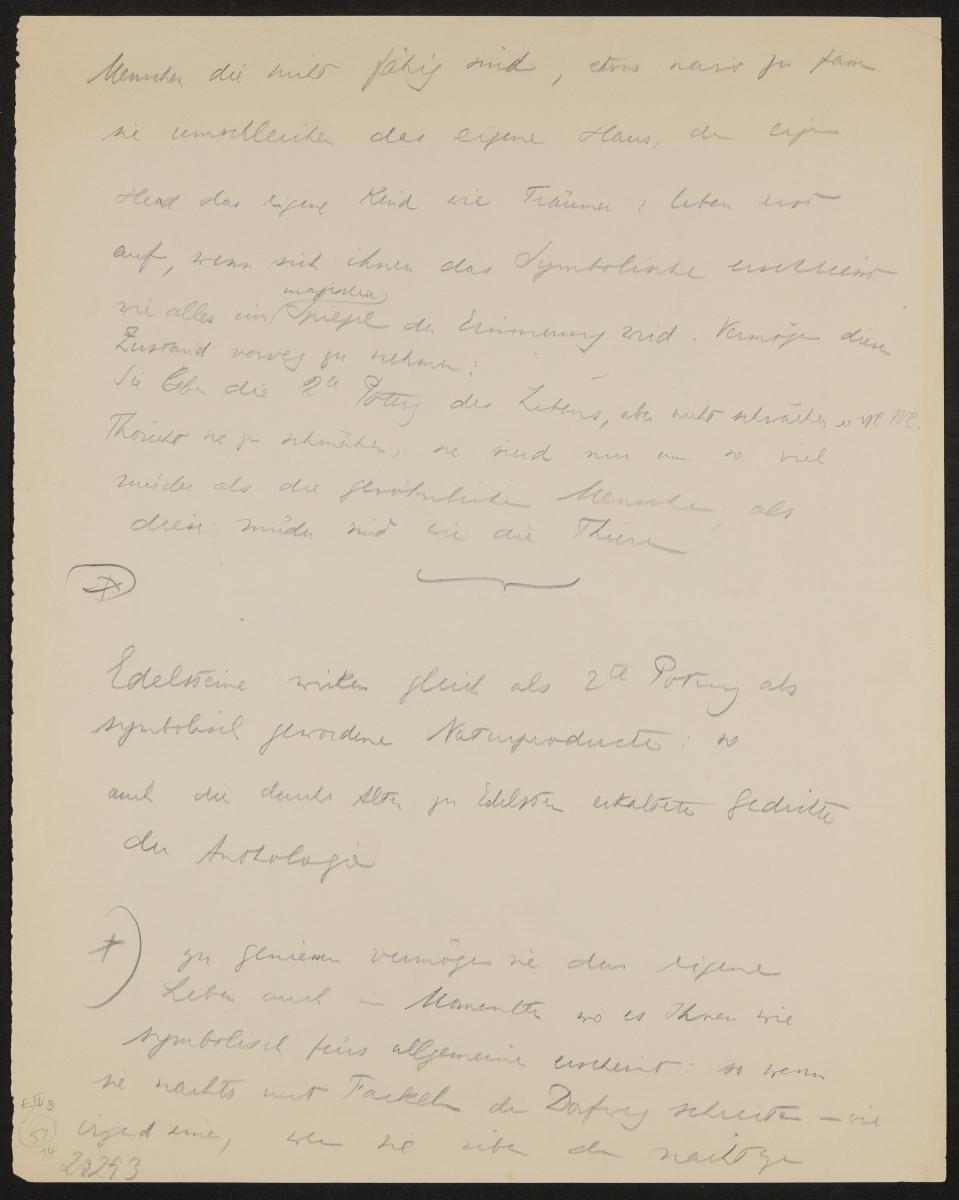 Menschen die nicht fähig sind, etwas naiv zu
sie umschleichen das eigene Haus, den eigen
Herd das eigene Kind wie Träumer: leben erst
auf, wenn sich ihnen das Symbolische
magischen
wie alles im Spiegel der Erinnerung wird. Vermögen diesen
Zustand vorweg zu nehmen:
Sie leben die 2te Potenz des Lebens, aber nicht schwächer
Thöricht sie zu schmähen, sie sind nur um so viel
müder als die gewöhnlichen Menschen, als
diese müder sind wie die Thiere
Edelsteine wirken gleich als 2te Potenz als
symbolisch gewordene Naturproducte: so
auch die durchs Alter zu Edelstein erkaltete Gedichte
der Anthologie
zu geniessen vermögen sie das eigene
Leben auch in Momenten wo es Ihnen wie
symbolisch fürs allgemeine erscheint: so wenn
sie nachts mit Fackeln den Dorfweg schreiten – wie
irgend einer, wenn sie über den
E IV B
51
14
20293